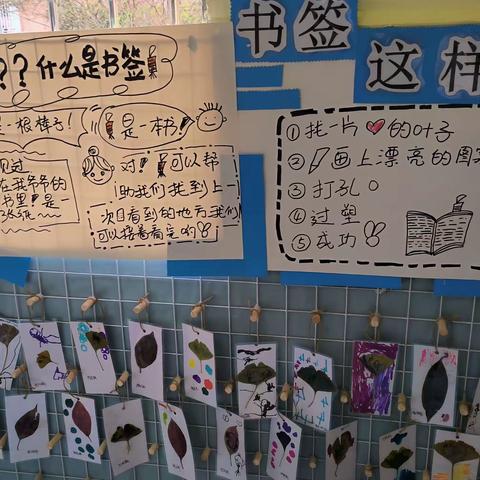 书签
这样
？？什么是书签
是一根棒子！
是一本书
见过
在我爷爷的
书里！是一
张纸
对！ 可以帮
助我们找到上一
次看到的地方我们
可以接着看完的
①找一片 的叶子
② 画上漂亮的图案
③打孔
④过塑
⑤成功